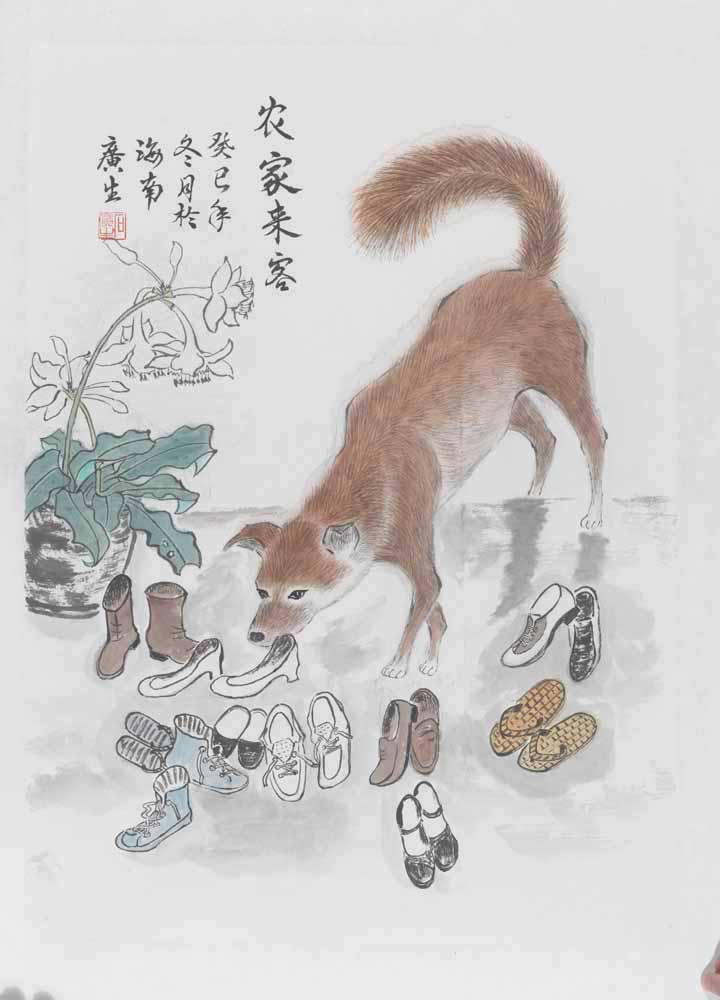 农家来客
癸巳年
冬月於
海南
廣生